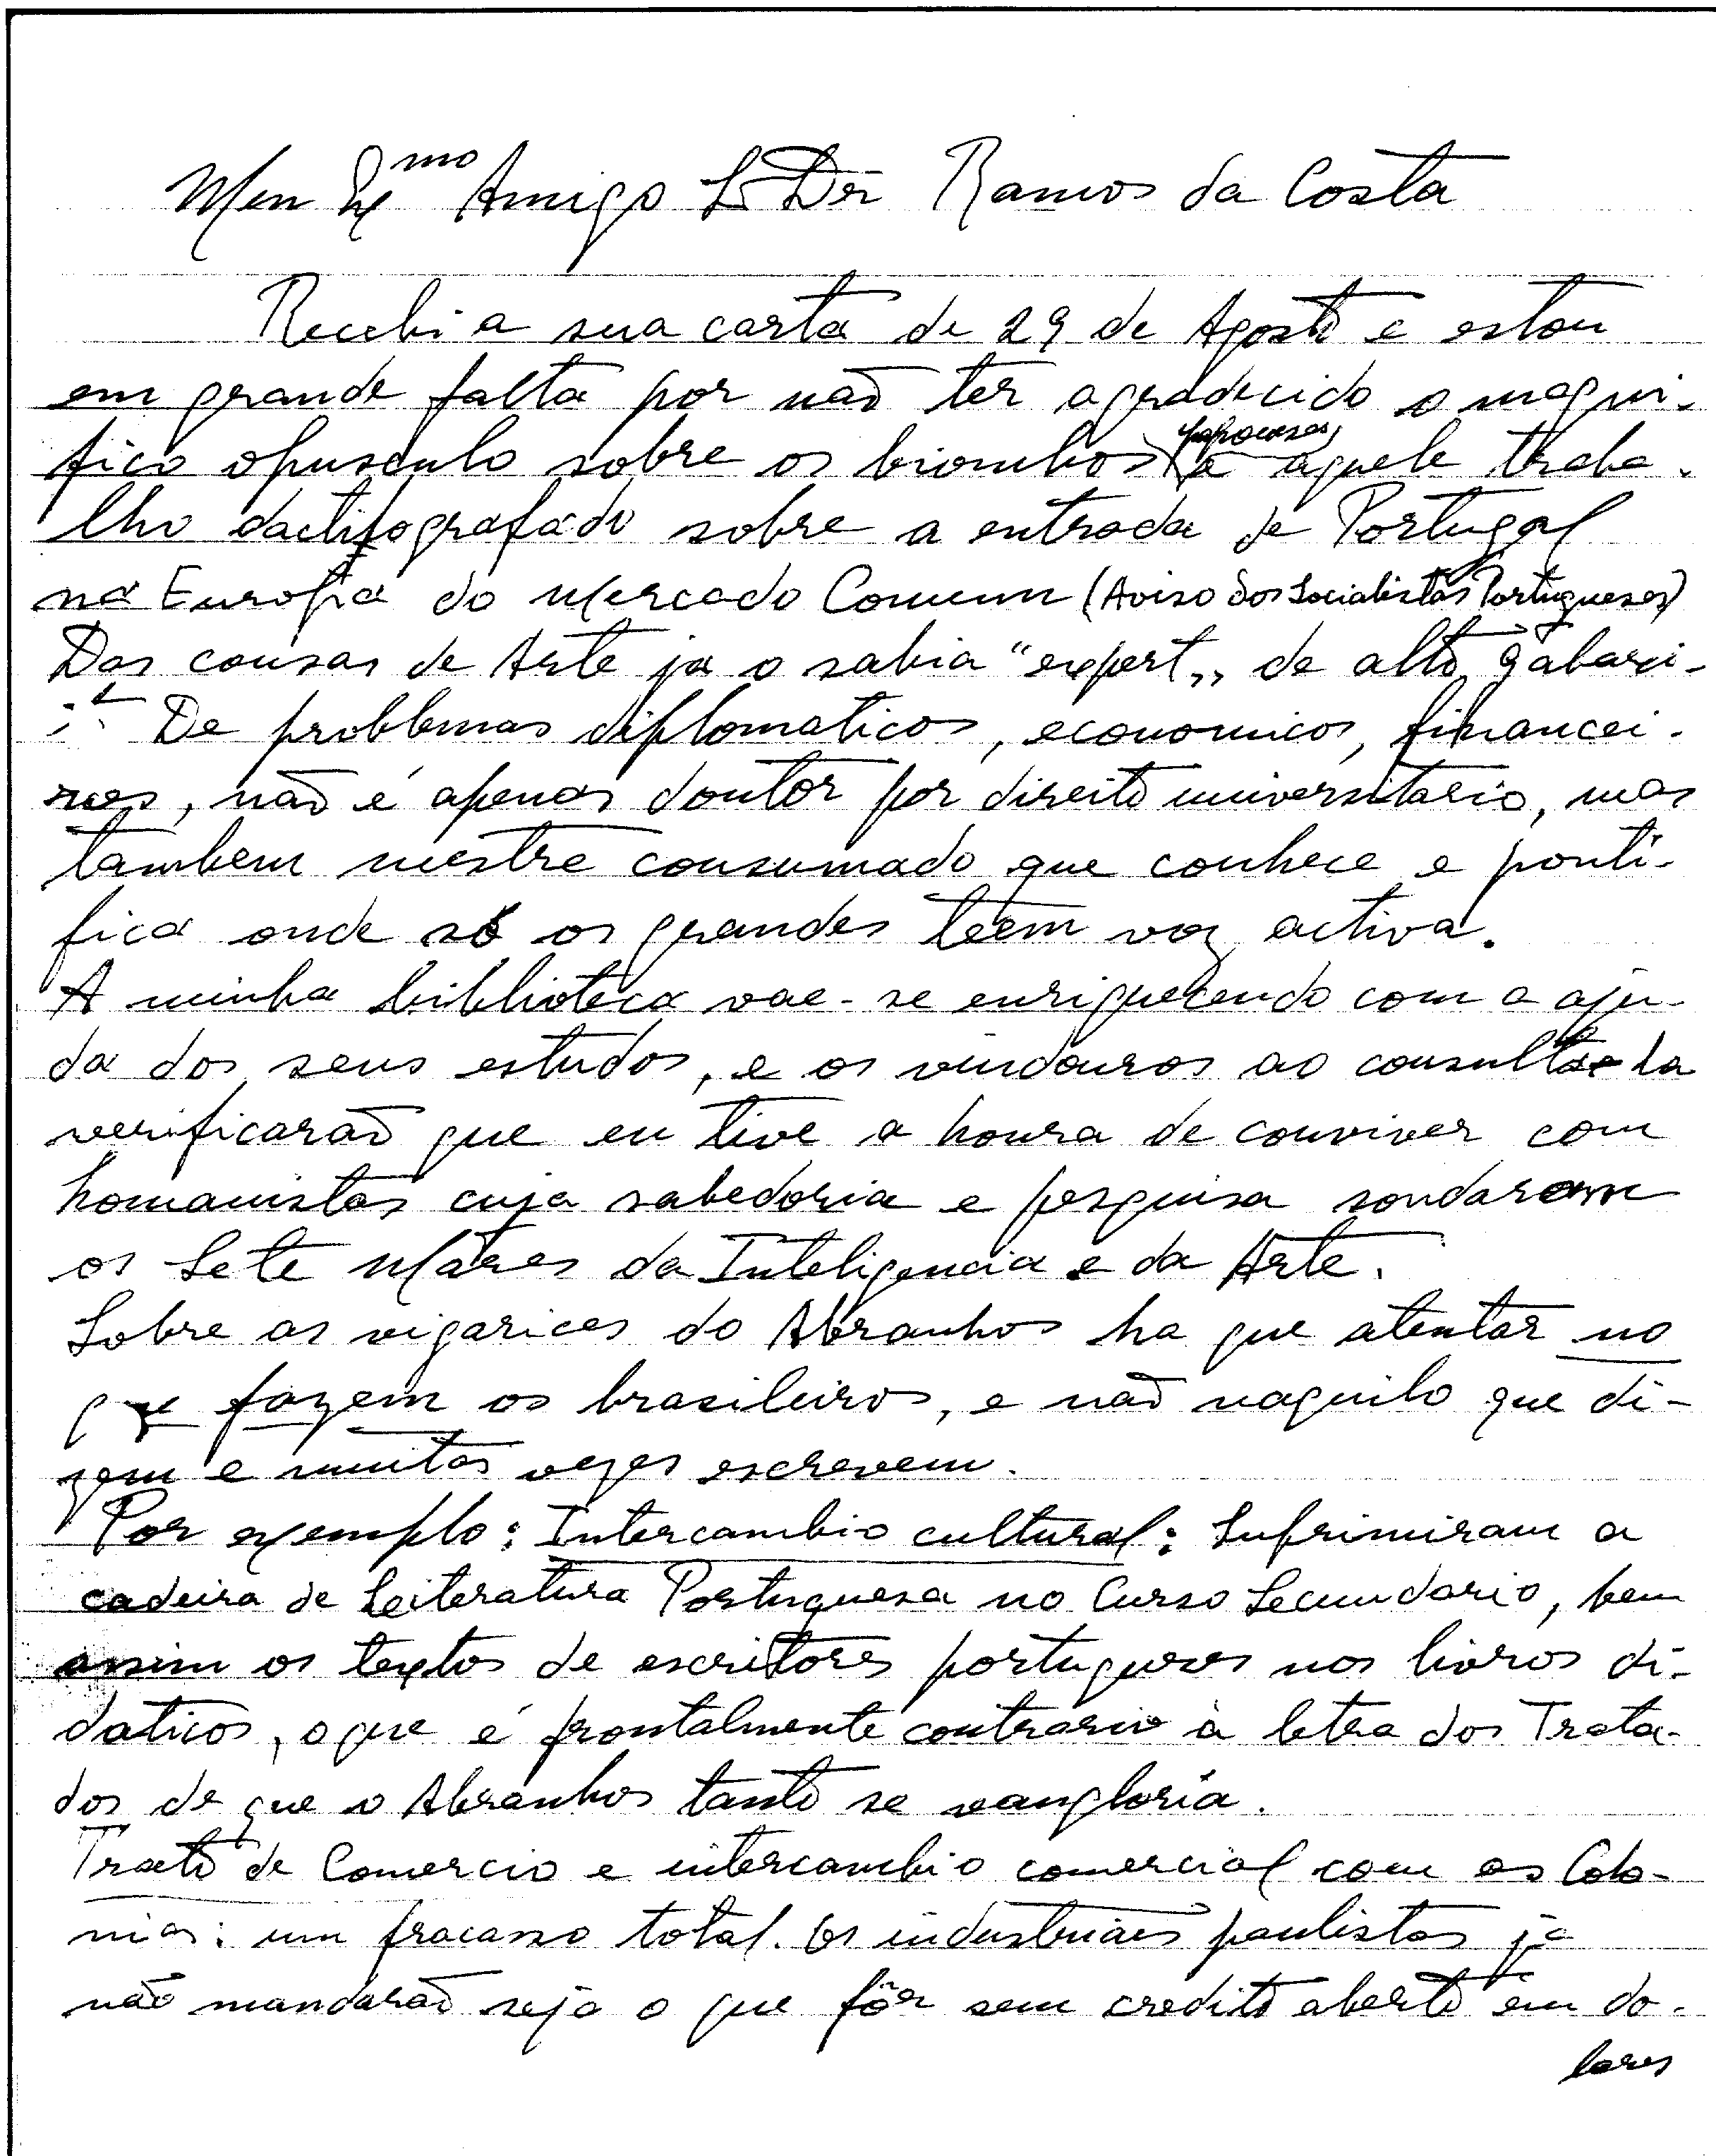 Meu Exmo Amigo Sr Dr Ramos da Costa
Recebi a sua carta de 29 de Agosto e estou
em grande falta por não ter agradecido o magni-
fico opusculo sobre os biombos japoneses, e aquele traba-
lho dactilografado sobre a entrada de Portugal
na Europa do Mercado Comum (Aviso dos Socialistas Portugueses)
Das cousas de Arte ja o sabia "expert" de alto gabari-
to. De problemas diplomaticos, economicos, financei-
ros, não é apenas doutor por direito universitario, mas
tambem mestre consumado que conhece e ponti-
fica onde só os grandes teem voz activa.
A minha biblioteca vae-se enriquecendo com a aju-
da dos seus estudos, e os vindouros ao consulta-la
verificarão que eu tive a honra de conviver com
homanistas cuja sabedoria e pesquisa sondaram
os Sete Mares da Inteligencia e da Arte.
Sobre as vigarices do Abranhos ha que atentar no
que fazem os brasileiros, e não naquilo que di-
zem e muitas vezes escrevem.
Por exemplo: Intercambio cultural: Suprimiram a
cadeira de Leiteratura Portuguesa no Curso Secundario, bem
assim os textos de escritores portugueses nos livros di-
daticos, o que é frontalmente contrario à letra dos Trata-
dos de que o Abranhos tanto se vangloria.
Tracto de Comercio e intercambio comercial com as Colo-
nias: um fracasso total. Os industriaes paulistas já
não mandarão seja o que fôr sem credito aberto em do-
lares